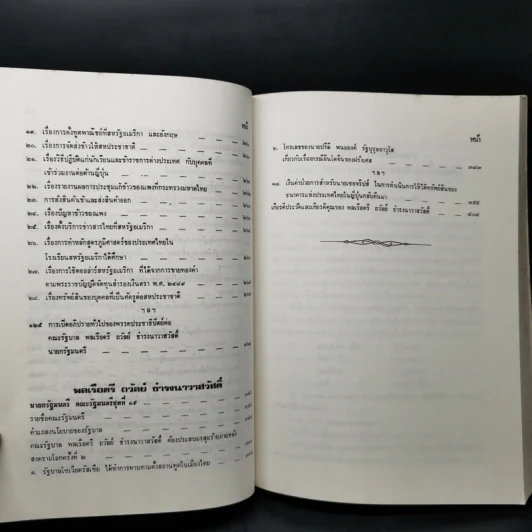 หน้า
๑๙. เรื่องการตั้งทูตพาณิชย์ที่สหรัฐอเมริกา และอังกฤษ
๒๐. เรื่องการจัดส่งข้าวให้สหประชาชาติ
๒๑. เรื่องวิธีปฏิบัติแก่นักเรียนและข้าราชการต่างประเทศ กับบุคคลที่
เข้าร่วมงานต่อต้านญี่ปุ่น
๒๒. เรื่องรายงานผลการประชุมแก้ข้าวของแพงที่กระทรวงมหาดไทย
๒๓. การสั่งสินค้าเข้าและส่งสินค้าออก
๒๔. เรื่องปัญหาข้าวของแพง
๒๕. เรื่องตั้งบริการข่าวสารไทยที่สหรัฐอเมริกา
๒๖. เรื่องการทำหลักสูตรภูมิศาสตร์ของประเทศไทยใน
โรงเรียนสหรัฐอเมริกาใต้ศึกษา
๒๗. เรื่องการใช้ดอลล่าร์สหรัฐอเมริกา ที่ได้จากการขายทองคำ
ตามพระราชบัญญัติจัดทุนสำรองเงินตรา พ.ศ. ๒๔๘๙
๒๘. เรื่องทรัพย์สินของบุคคลที่เป็นศัตรูต่อสหประชาชาติ
ฯลฯ
การเปิดอภิปรายทั่วไปของพรรคประชาธิปัตย์ต่อ
คณะรัฐบาล พลเรือตรี ถวัลย์ ธำรงนาวาสวัสดิ์
นายกรัฐมนตรี
พลเรือตรี ถวัลย์ ธำรงนาวาสวัสดิ์
นายกรัฐมนตรี คณะรัฐมนตรีชุดที่ ๑๙
รายชื่อคณะรัฐมนตรี
คำแถลงนโยบายของรัฐบาล
คณะรัฐบาล พลเรือตรี ถวัลย์ ธำรงนาวาสวัสดิ์ ต้องประสบมรสุมร้ายภายหลัง
สงครามโลกครั้งที่ ๒
๑. รัฐบาลโซเวียตรัสเซีย ได้ทำการทาบทามตั้งสถานทูตในเมืองไทย
หน้า
๒. โทรเลขของนายปรีดี พนมยงค์ รัฐบุรุษอาวุโส
เกี่ยวกับเรื่องกรณีอินโดจีนของฝรั่งเศส
ฯลฯ
เงินค่าป่วยการสำหรับนายเซอจริปส์ ในการดำเนินการให้ได้ทรัพย์สินของ
ธนาคารแห่งประเทศไทยในญี่ปุ่นกลับคืนมา
เกียรติประวัติและเกียรติคุณของ พลเรือตรี ถวัลย์ ธำรงนาวาสวัสดิ์